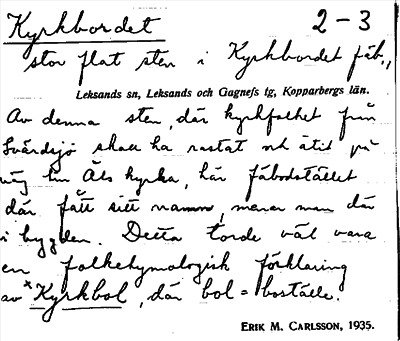 Kyrkbordet 2-3
stor flat sten i Kyrkbordet fäb.,
Leksands sn, Leksands och Gagnefs tg, Kopparbergs län.
Av denna sten, där kyrkfolket från
Svärdsjö skall ha rastat och ätit på
väg till Åls kyrka, har fäbodstället
där fått sitt namn, menar man där
i bygden. Detta torde väl vara
en folketymologisk förklaring
av *Kyrkbol, där bol = boställe.
ERIK M. CARLSSON, 1935.